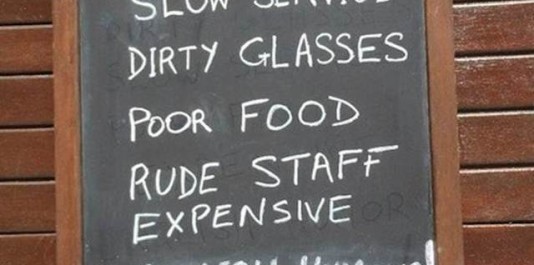 SLOW SERVICE
DIRTY GLASSES
POOR FOOD
RUDE STAFF
EXPENSIVE